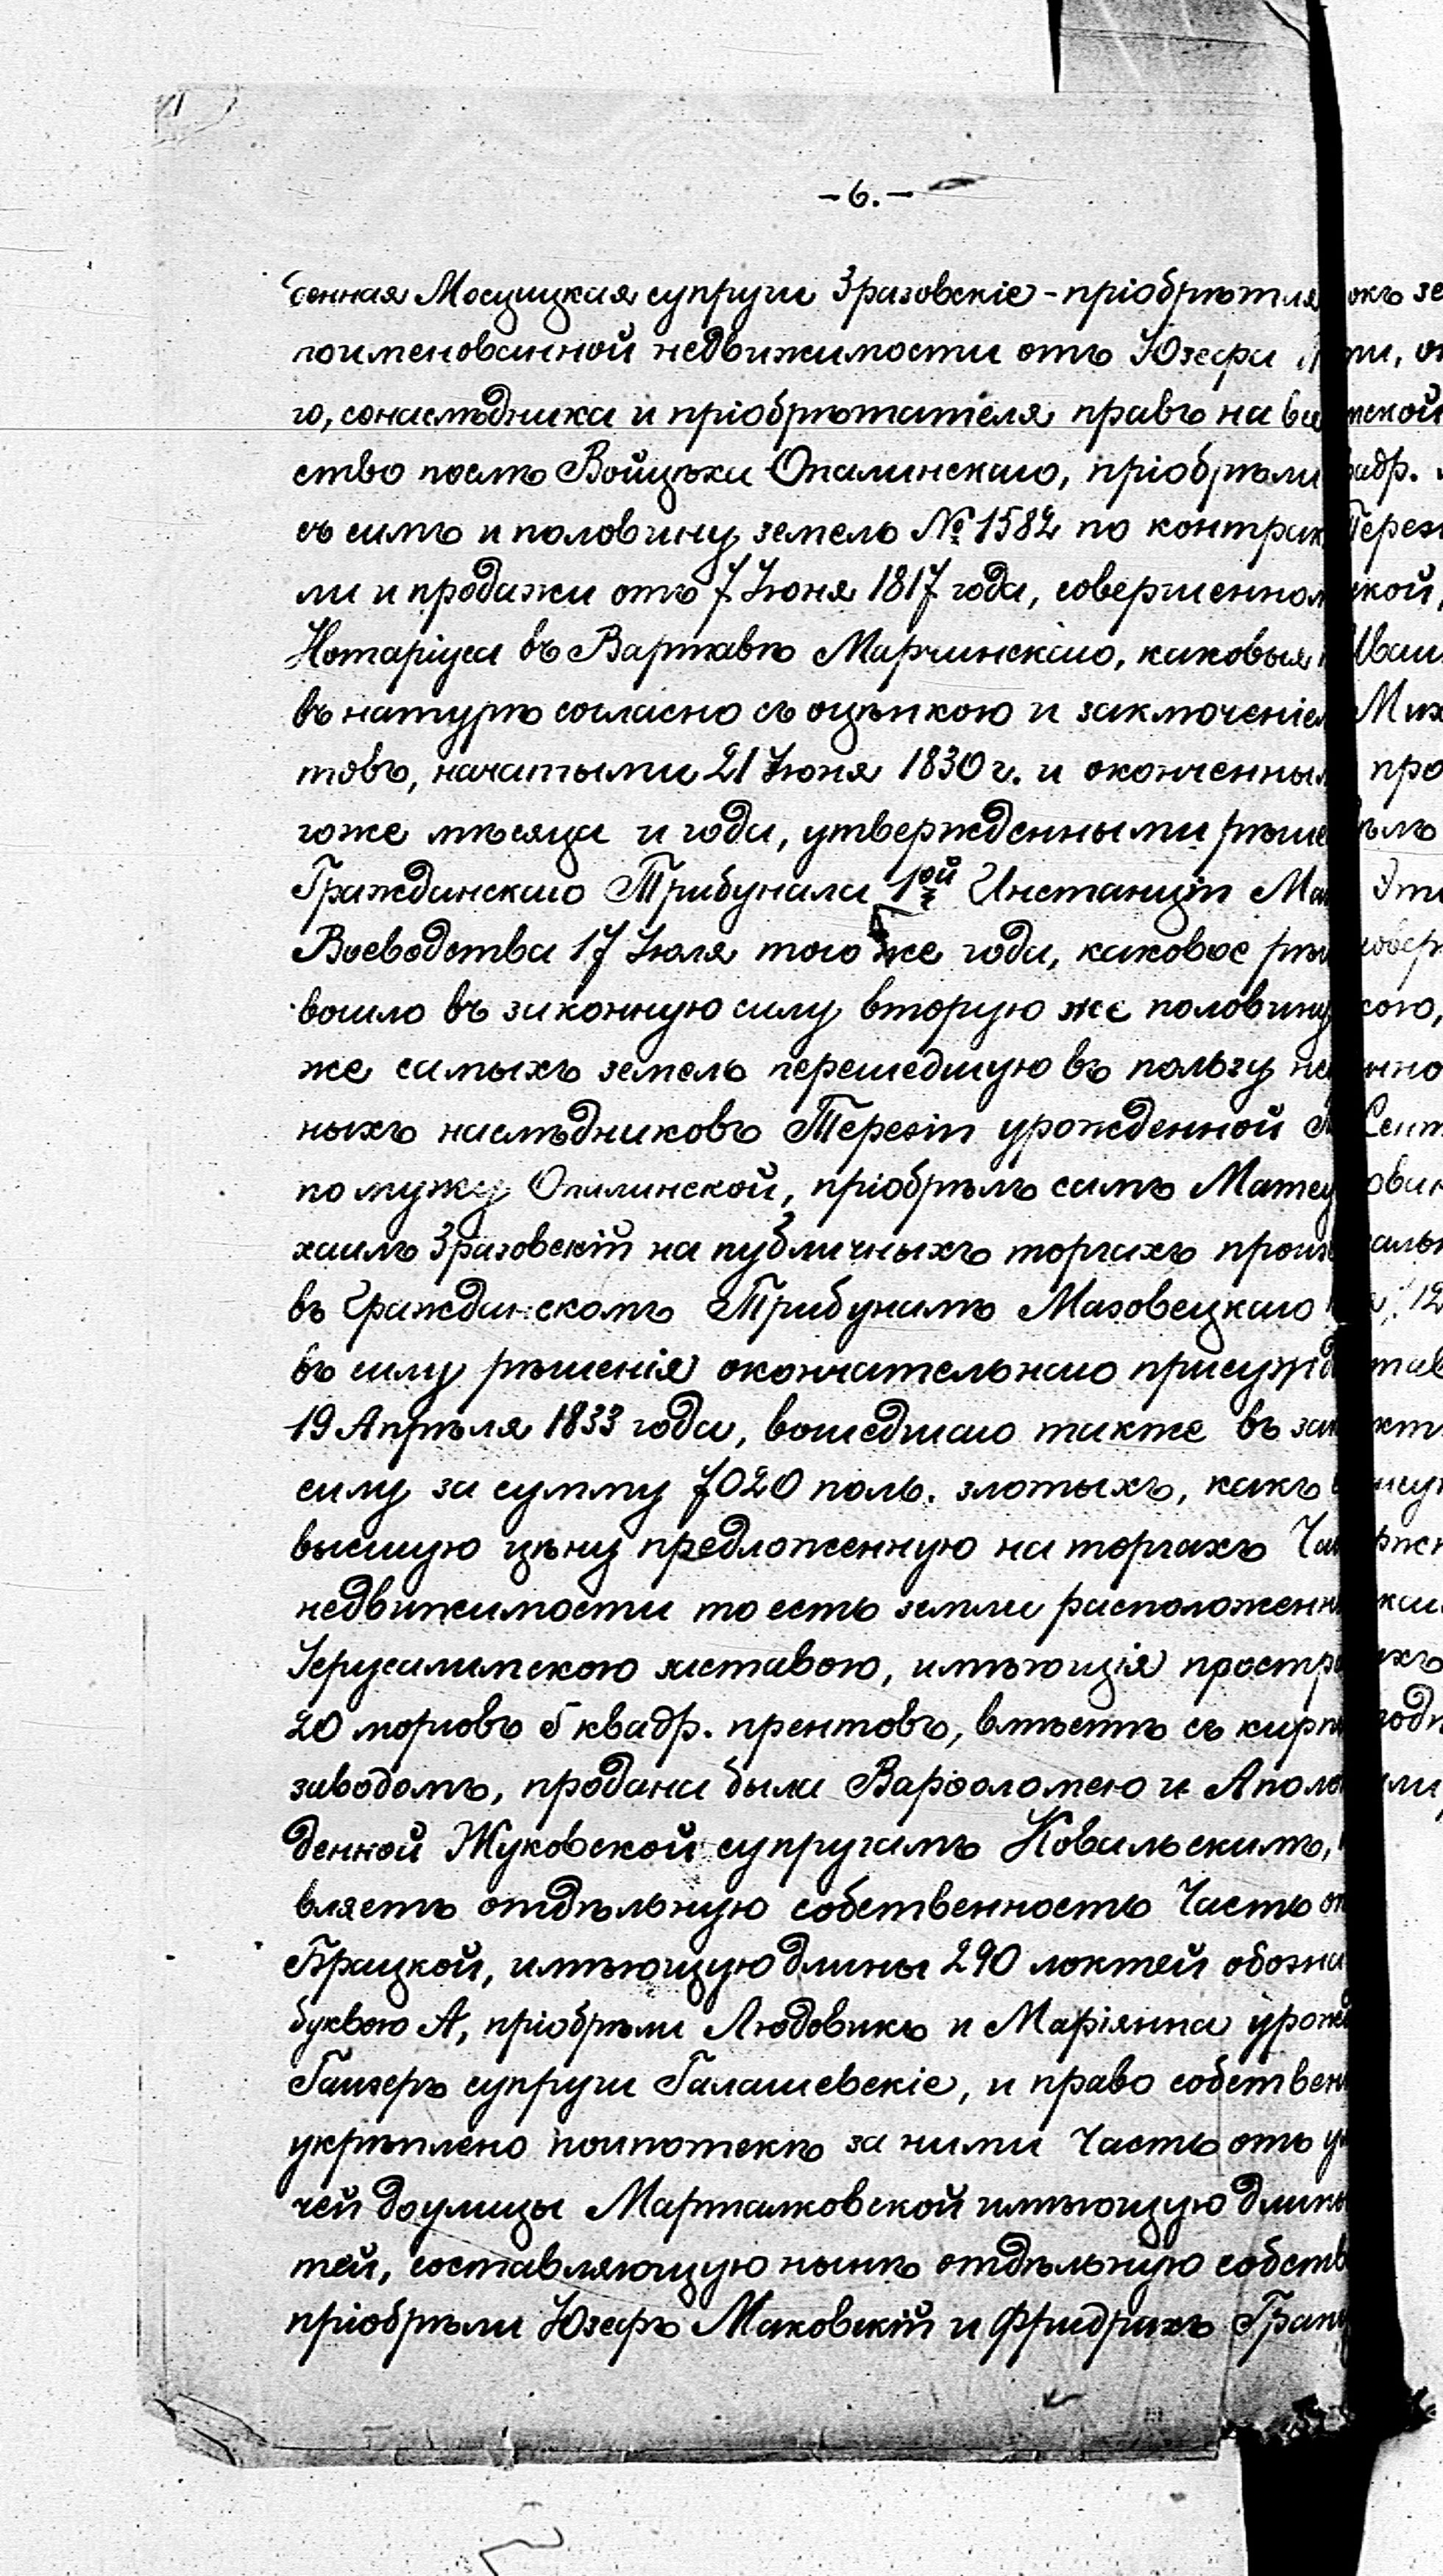 -6.-
денная Мосцицкая супруги Зразовскіе - пріобрѣтля
поименованной недвижимости отъ Юзефа
го, сонаслѣдника и пріобрѣтателя правъ на все
ство послѣ Войцѣха Опалинскаго, пріобрѣли
въ силѣ и половину земель № 1582 по контрак
ли и продажи отъ 7 Іюня 1817 года, совершенном
Нотаріуса въ Варшавѣ Марчинскаго, каковыя
въ натурѣ согласно съ оцѣнкою и заключеніем
товъ, начатыми 21 Іюня 1830 г. и оконченным
гоже мѣсяца и года, утвержденными рѣше
Гражданскаго Трибунала 1ой Инстанціи Маз
Воеводства 17 Іюля того же года, каковое рѣш
вошло въ законную силу вторую же половину
же самыхъ земель перешедшую въ пользу не
ныхъ наслѣдниковъ Терезіи урожденной
по мужу Опалинской, пріобрѣлъ самъ Матеу
хаилъ Зразовскій на публичныхъ торгахъ произ
въ Гражданскомъ Трибуналѣ Мазовецкаго
въ силу рѣшенія окончательнаго присужд
19 Апрѣля 1833 года, вошедшаго также въ зак
силу за сумму 7020 поль. злотыхъ, какъ
высшую цѣну предложенную на торгахъ Час
недвижимости то есть земли расположенн
Іерусалимскою заставою, имѣющія простр
20 морговъ 5 квадр. прентовъ, вмѣстѣ съ кирп
заводомъ, продана были Варѳоломею и Аполо
денной Жуковской супругамъ Ковальскимъ,
вляетъ отдѣльную собственность Часть от
Брацкой, имѣющую длины 290 локтей обозна
буквою А, пріобрѣли Людовикъ и Маріянна урожд
Гаигеръ супруги Галашевскіе, и право собствен
укрѣплено поипотекѣ за ними Часть отъ у
чей доулицы Маршалковской имѣющую длины
тей, составляющую нынѣ отдѣльную собств
пріобрѣли Юзефъ Маковскій и Фридрихъ Грап